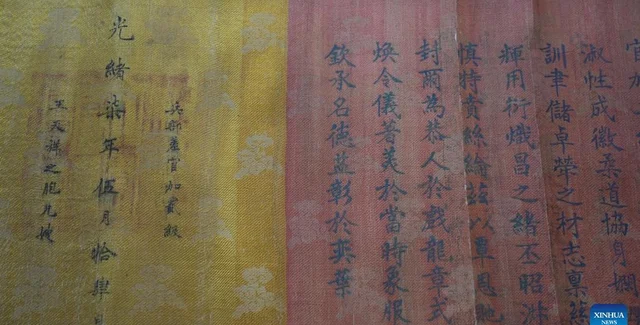 官加
淑性成徽柔道協身嫻
訓聿儲卓犖之材志稟慈
輝用衍熾昌之緒丕昭
慎特賁絲綸茲以覃恩貤
封爾為恭人於戲龍章式
煥令儀著美於當時象服
欽承名德益彰於奕葉
兵部差官加貳級
光緒柒年伍月拾
王天祥之胞兄嫂
XINHUA
NEWS